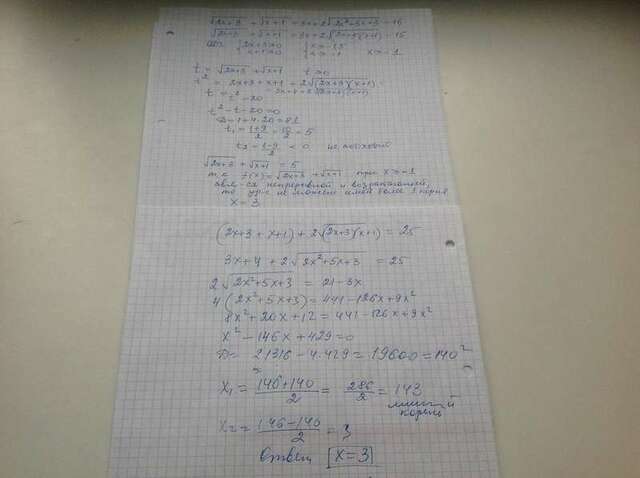 √2x+3 + √x+1 = 3x+2√2x²+5x+3 - 16
√2x+3 + √x+1 = 3x+2√(2x+3)(x+1) - 16
{2x+3≥0 {x≥-1,5 x≥-1
x+1≥0 x≥-1
t = √2x+3 + √x+1 t≥0
t² = 2x+3+x+1+2√(2x+3)(x+1) =
= 3x+4+2√(2x+3)(x+1)
t = t²-20
t²-t-20=0
D=1+4·20=81
t₁ = 1+9/2 = 10/2 = 5
t₂ = 1-9/2 < 0 не подходит
√2x+3 + √x+1 = 5
т.к. f(x) = √2x+3 + √x+1 при x≥-1
явл-ся непрерывной и возрастающей,
то ур-е не может иметь более 1 корня
x=3
(2x+3+x+1)+2√(2x+3)(x+1) = 25
3x+4+2√2x²+5x+3 = 25
2√2x²+5x+3 = 21-3x
4(2x²+5x+3)=441-126x+9x²
8x²+20x+12=441-126x+9x²
x²-146x+429=0
D= 21316-4·429=19600=140²
x₁= 146+140/2 = 286/2 = 143
лишний
корень
x₂= 146-140/2 = 3
Ответ x=3